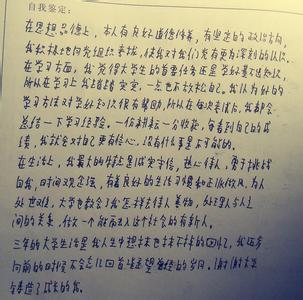 自我鉴定:
在思想品德上,本人有良好道德修养,有坚定的政治方向,
我积极地向党组织靠拢,使我对我们党有更为深刻的认识。
在学习方面,我觉得大学生的首要任务还是学好基本知识,
所以在学习上我踏踏实实,一点也不放松自己。我认为好的
学习方法对学好知识很有帮助,所以在每次考试后,我都会
总结一下学习经验。一份耕耘一分收获,每看到自己的成
绩,我就会对自己更有信心,没有什么事是不可能的。
在生活上,我最大的特点是诚实守信,热心待人,勇于挑战
自我,时间观念强,有着良好的生活习惯和正派作风。为人
处世,大学也教会了我怎样去待人美物,处理人与人之
间的关系,做一个能融入这个社会的有新人。
三年的大学生活是我人生中想抹也抹不掉的回忆,我迈步
向前的时候不会忘记回首遥望曾经的岁月。谢谢大学